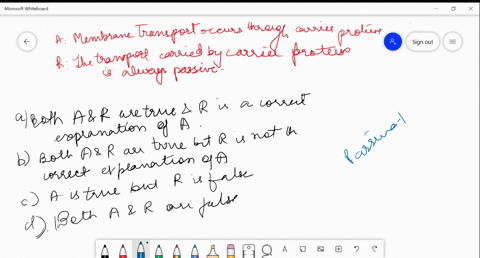 Microsoft Whiteboard
Sign out
A: Membrane Transport occurs through carrier protein
R: The transport carried by carrier protein
is always passive.
a) Both A & R are true & R is a correct
explanation of A.
b) Both A & R are true but R is not
correct explanation of A
c) A is true but R is false
d). Both A & R are false